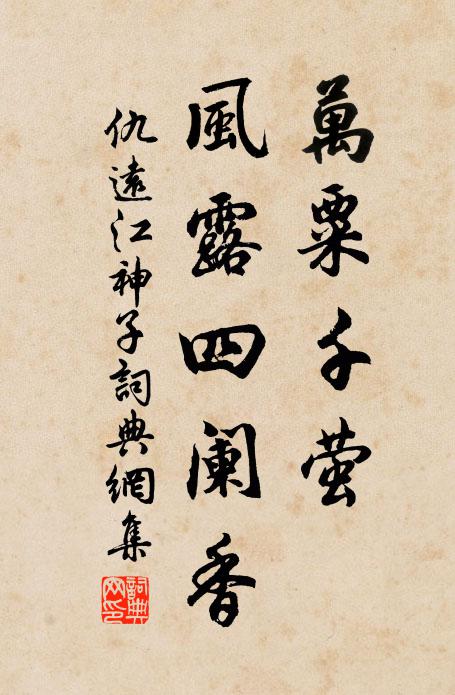 萬粟千萤
風露四阑香
仇遠江神子詞典網集
詞典网印